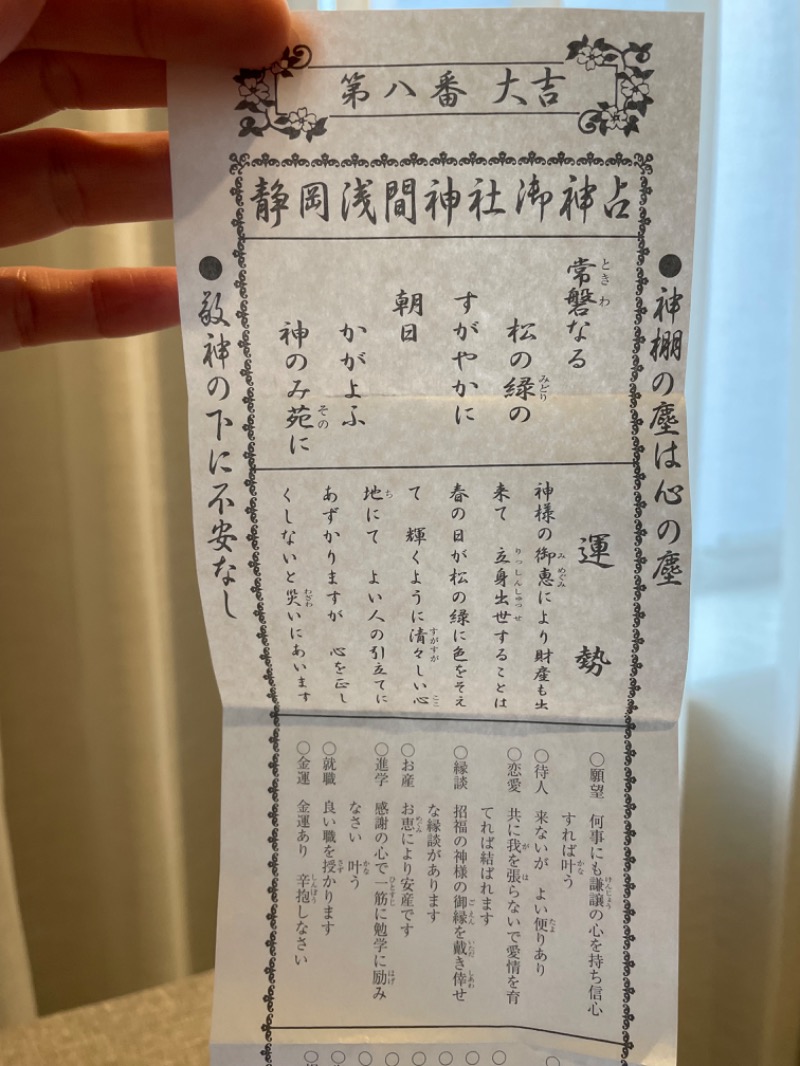 第八番 大吉
静岡浅間神社御神占
●神棚の塵は心の塵
常磐なる
松の緑の
すがやかに
朝日
かがよふ
神のみ苑に
運勢
神様の御恵により財産も出
来て 立身出世することは
春の日が松の緑に色をそえ
て 輝くように清々しい心
地にて よい人の引立てに
あずかりますが 心を正し
くしないと災いにあいます
○願望 何事にも謙譲の心を持ち信心
すれば叶う
○待人 来ないが よい便りあり
○恋愛 共に我を張らないで愛情を育
てれば結ばれます
○縁談 招福の神様の御縁を戴き倖せ
な縁談があります
○お産 お恵により安産です
○進学 感謝の心で一筋に勉学に励み
なさい 叶う
○就職 良い職を授かります
○金運 金運あり 辛抱しなさい
●敬神の下に不安なし